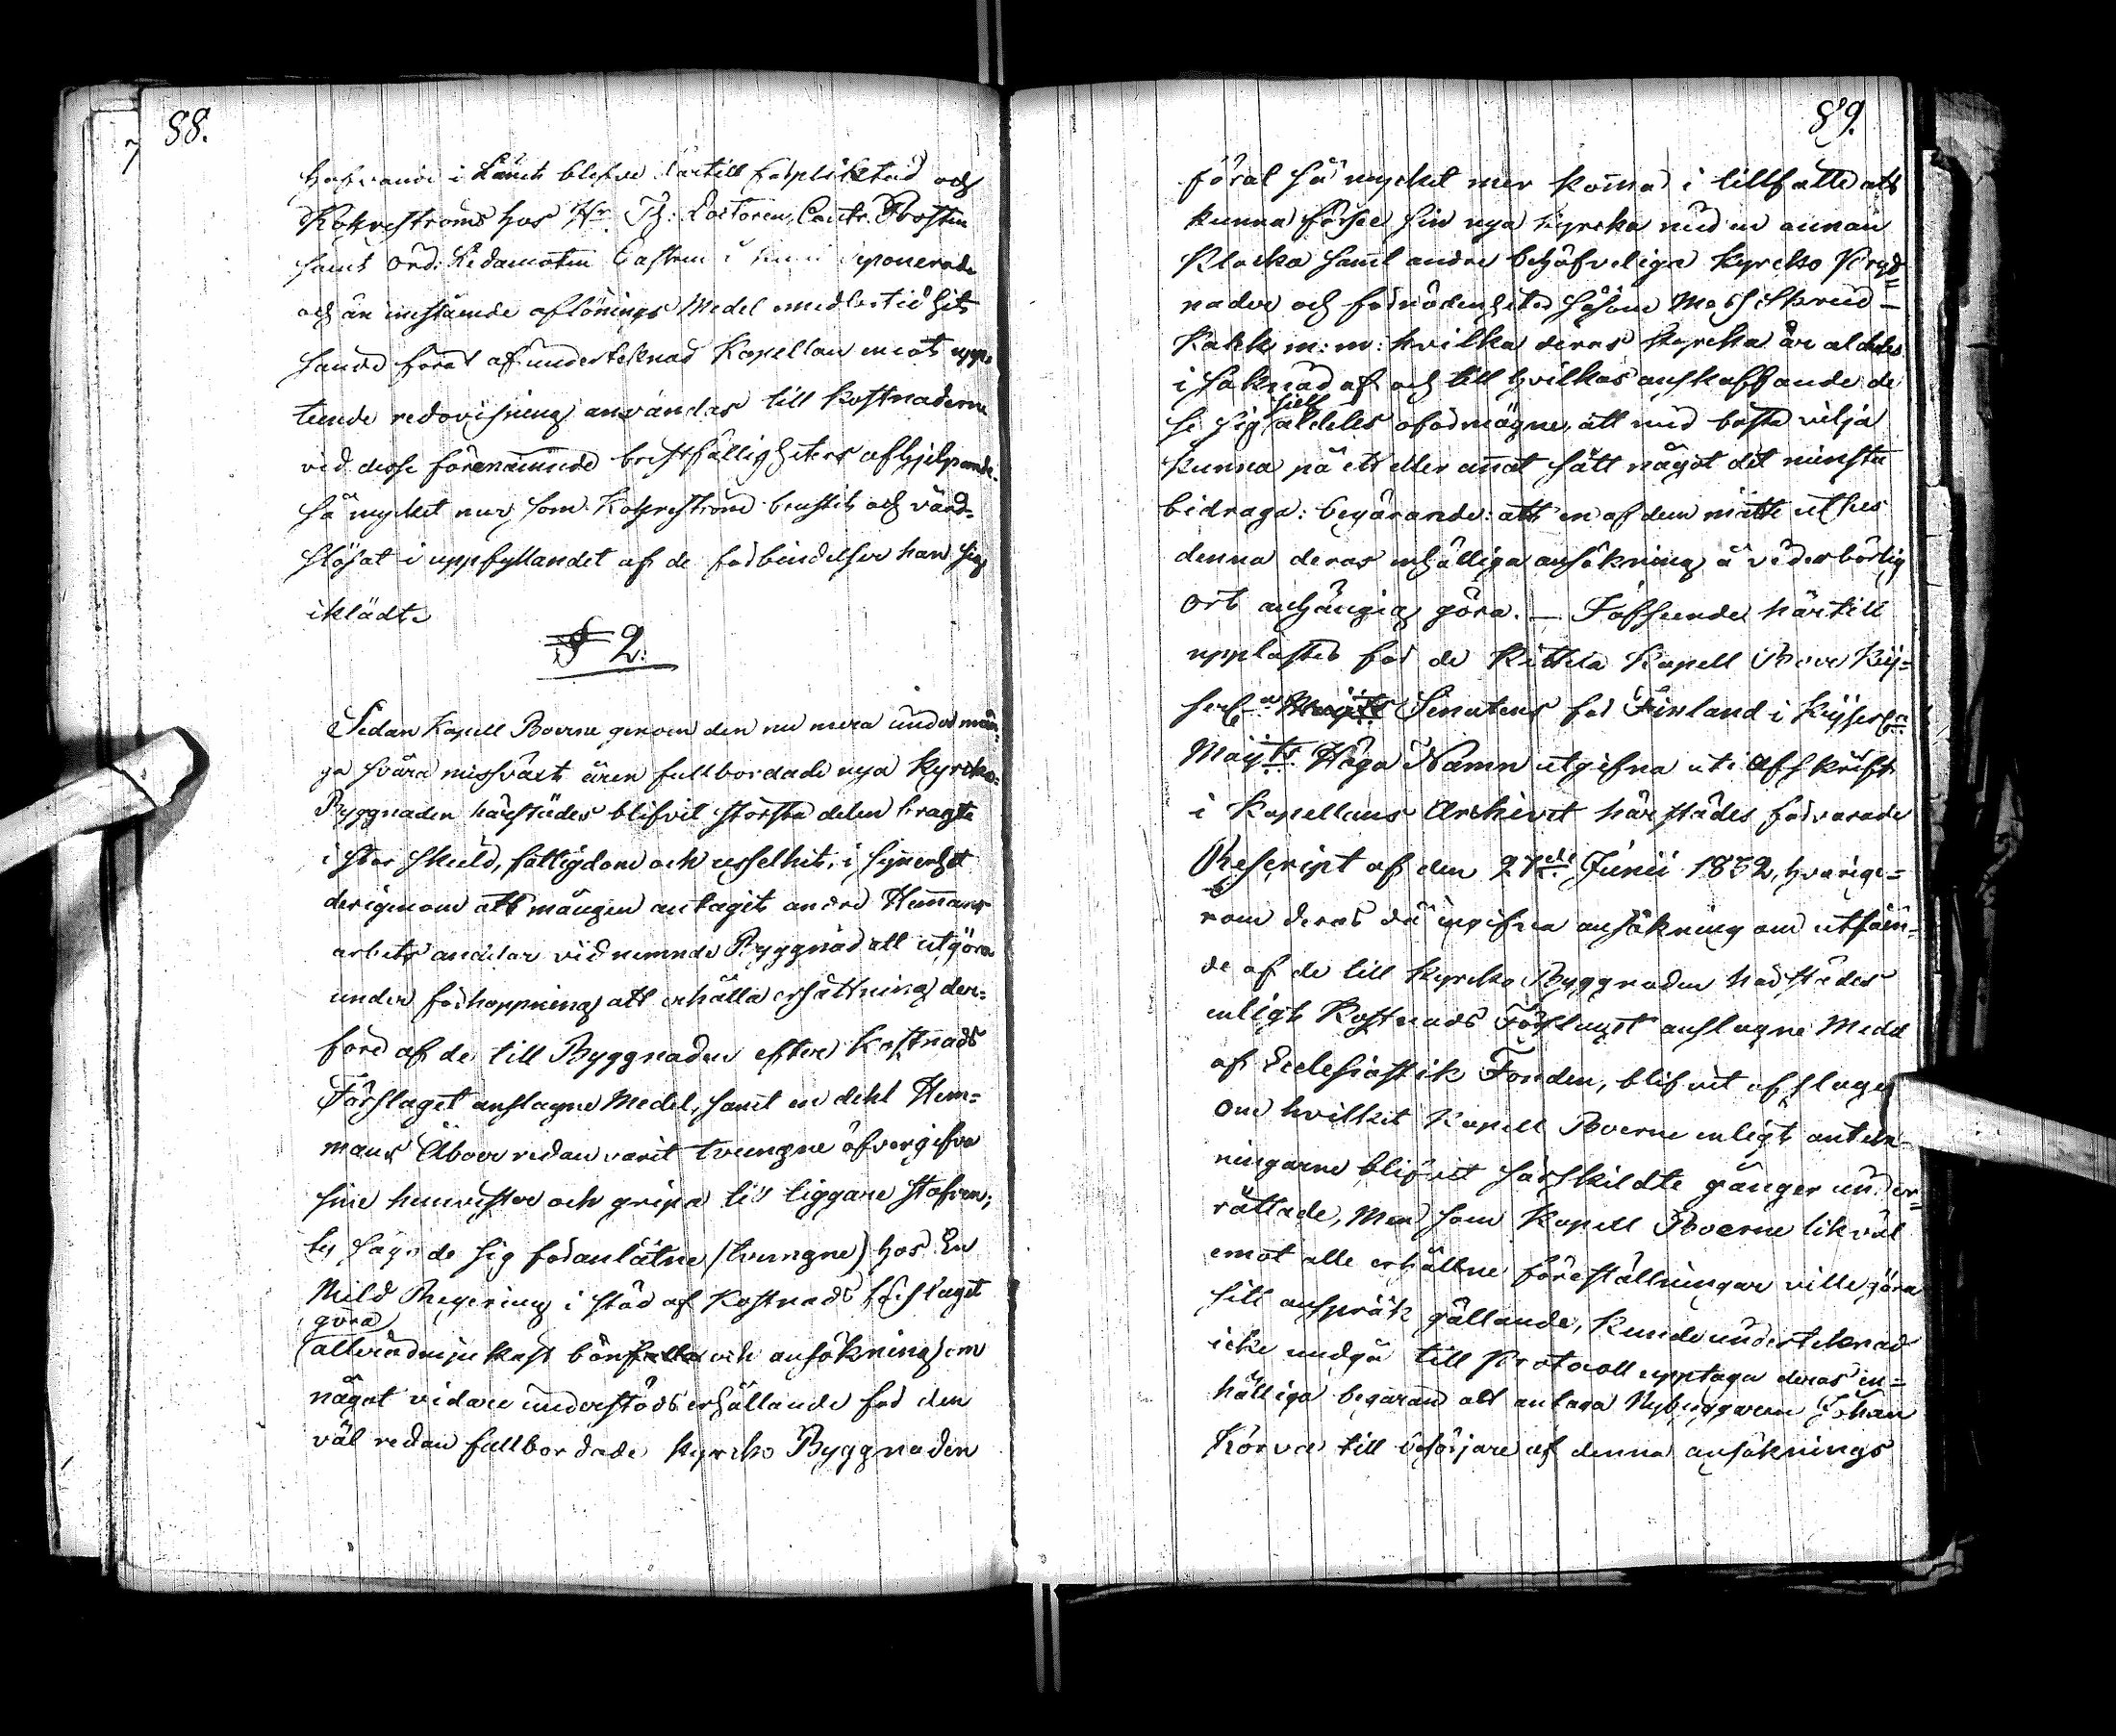 88.
hafvande i Länet blefve dertill förpliktad och
Rohrströms hos Hr Th: Doctoren, Contr. Prosten
samt Ord: Ledamoten Castren i Kemi deponerade
och än innestående aflönings Medel emedlertid hit
sände för at af undertecknad Kapellan emot upp-
teende redovisning användas till kostnaderne
vid desse förenämnde bristfälligheters afhjelpande.
så mycket mer, som Rohrström brustit och vård-
slösat i uppfyllandet af de förbindelser han sig
iklädt.
§ 2:
Sedan Kapell Boerne genom den nu mera under mån-
ga svåra missväxt åren fullbordade nya Kyrko-
Byggnaden härstädes blifvit största delen bragte
i stor skuld, fattigdom och usselhet, i synnerhet
derigenom att mången antagit andre Hemmans
arbets andelar vid nemnde Byggnad att utgöra
under förhoppning att erhålla ersättning der-
före af de till Byggnaden efter Kostnads
Förslaget anslagne Medel, samt en dehl Hem-
mans Åboer redan varit tvungne öfvergifva
sine hemvister och gripa till tiggare stafven;
ty säga de sig föranlåtne (tvungne) hos En
Mild Regering i stöd af Kostnads förslaget
göra
allerödmjukast bön och ansökning om
något vidare understöds erhållande för den
väl redan fullbordade Kyrko Byggnaden
89.
för at så mycket mer komma i tillfälle att
kunna förse sin nya Kyrcka med en annan
Klocka samt andre behöfvelige Kyrcko Pryd-
nader och förnödenheter såsom Mess Skrud -
Kalk m: m: hvilka deras Kyrcka är aldeles
i saknad af och till hvilkas anskaffande de
se sig aldeles oförmögne, att med bästa vilja
kunna på ett eller annat sätt något det minsta
bidraga: begärande: att en af dem måtte utses
denna deras enhälliga ansökning å vederbörlig
Ort anhängig göra. — I afseende härtill
upplästes för de Kittilä Kapell Boer Kej-
serl:a Senatens för Finland i Kejserl:a
Maij:ts Höga Namn utgifna uti Afskrift
i Kapellans Archivet härstädes förvarade
Rescript af den 27de Junii 1832, hvarige-
nom deras då ingifna ansökning om utfåen-
de af de till Kyrcko Byggnaden härstädes
enligt Kostnads Förslaget anslagne Medel
af Ecclesiastik Fonden, blifvit afslagen
om hvilket Kapell Boerne enligt anteck-
ningarne blifvit särskildte gånger under-
rättade, Men som Kapell Boerne likväl
emot alle erhållne föreställningar ville göra
sitt anspråk gällande, kunde undertecknad
icke undgå till Protocoll upptaga deras en-
hälliga begäran att antaga Nybyggaren Johan
Körva till besörjare af denna ansöknings